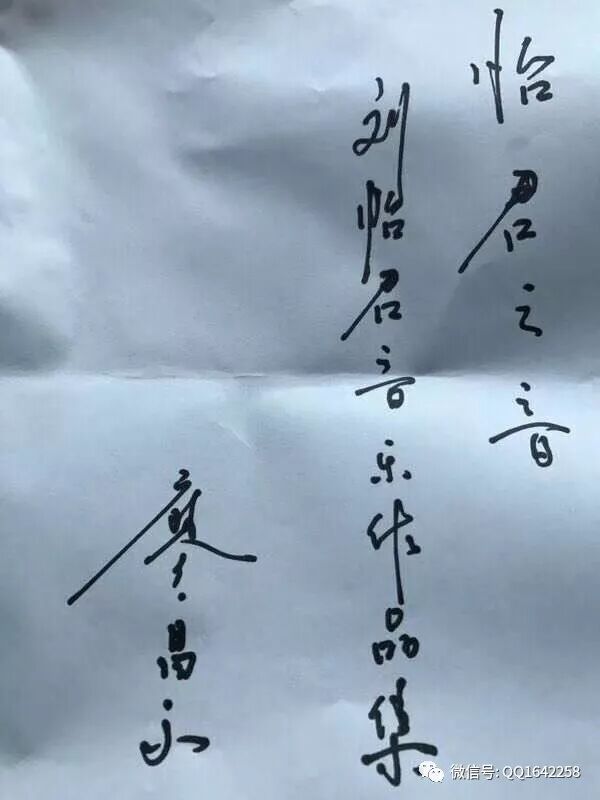 怡君之音
刘怡君音乐作品集
廖昌永
微信号: QQ1642258